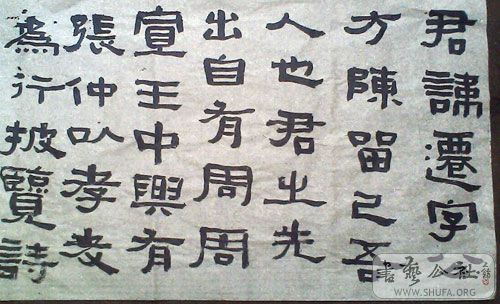 君諱遷字
方陳留己吾
人也君之先
出自有周周
宣王中興有
張仲以孝友
為行披覽詩
書藝公社
WWW.SHUFA.ORG